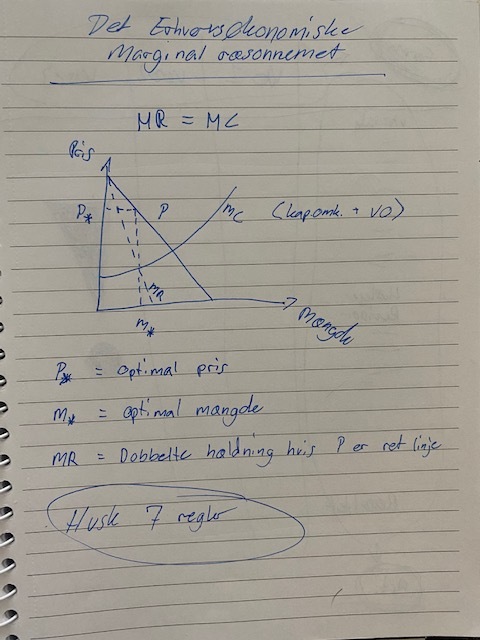 Det Erhvervsøkonomiske
Marginal ræsonnemet
MR = MC
Pris
P* P MC (kap.omk. + VO)
MR
m*
Mængde
P* = optimal pris
m* = optimal mængde
MR = Dobbelte hældning hvis P er ret linje
Husk 7 regler